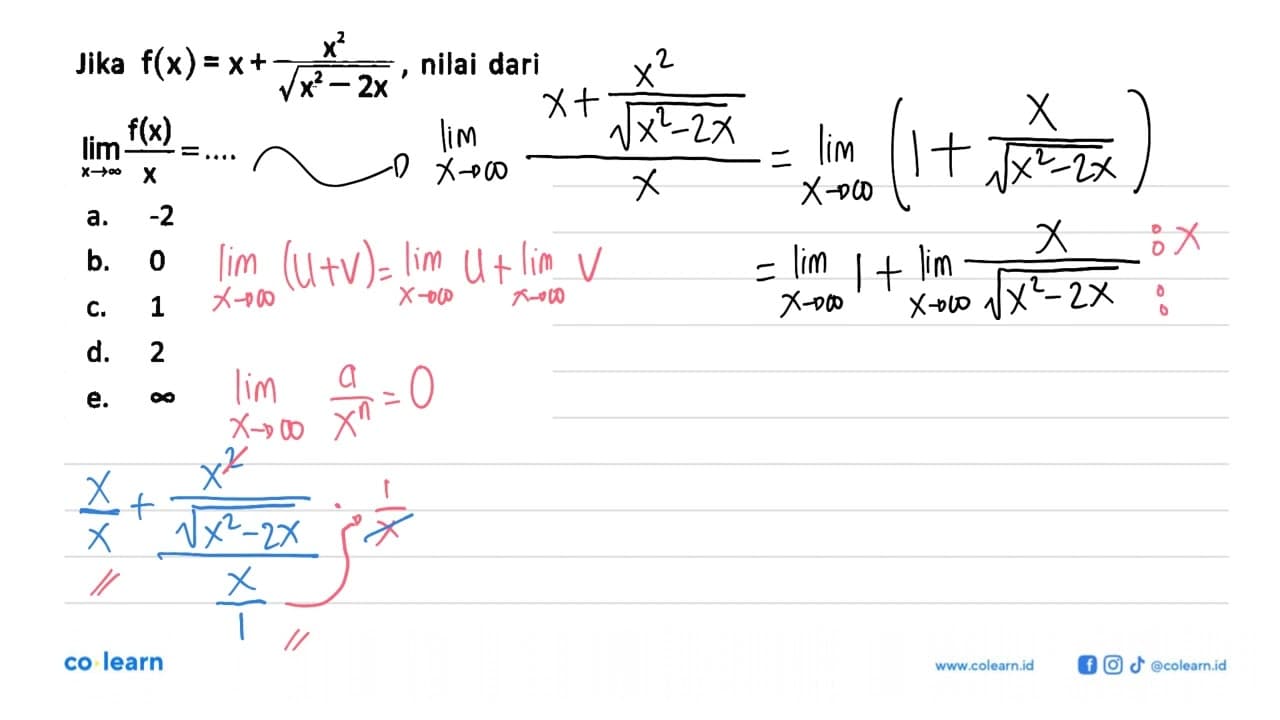 Jika f(x) = x + x²/√(x² − 2x), nilai dari
lim x→∞ f(x)/x = ....
a. -2
b. 0
c. 1
d. 2
e. ∞
lim x→∞ (x + x²/√(x²−2x))/x = lim x→∞ (1 + x/√(x²−2x))
= lim x→∞ 1 + lim x→∞ x/√(x²−2x) : x :
lim x→∞ (u+v) = lim x→∞ u + lim x→∞ v
lim x→∞ a/xⁿ = 0
x/x + (x²/√(x²−2x))/(x/1) · 1/x
co learn
www.colearn.id
@colearn.id